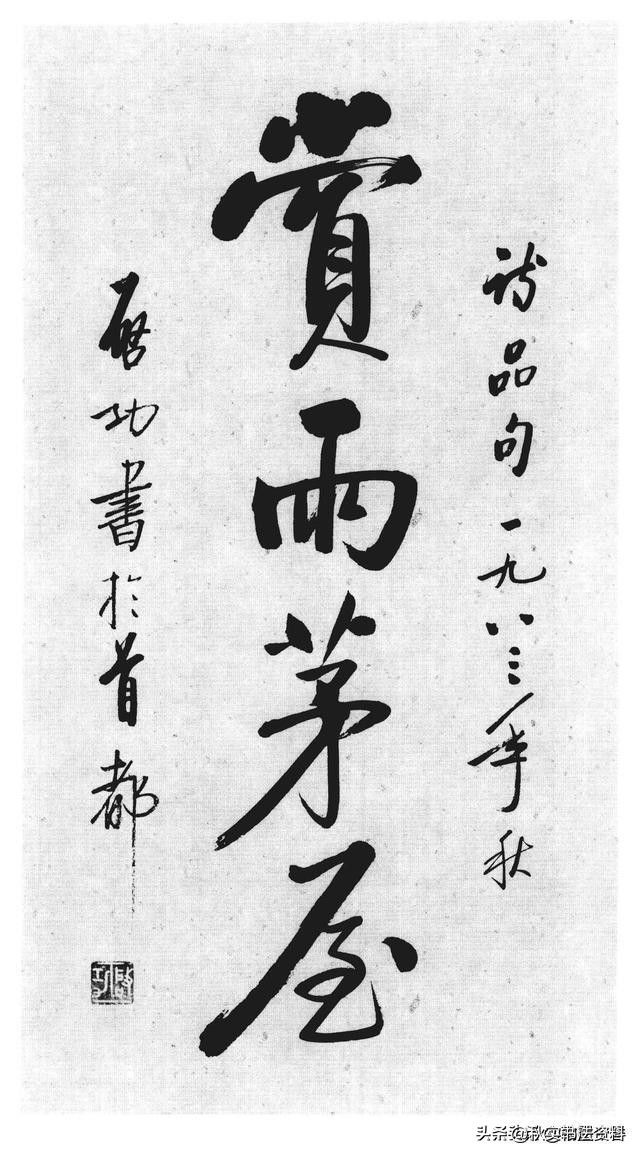 詩品句一九八三年秋
賞雨茅屋
啓功書於首都
啟功